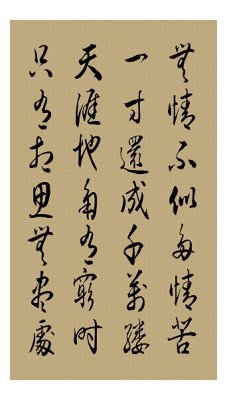 無情不似多情苦
一寸還成千萬縷
天涯地角有窮時
只有相思無盡處